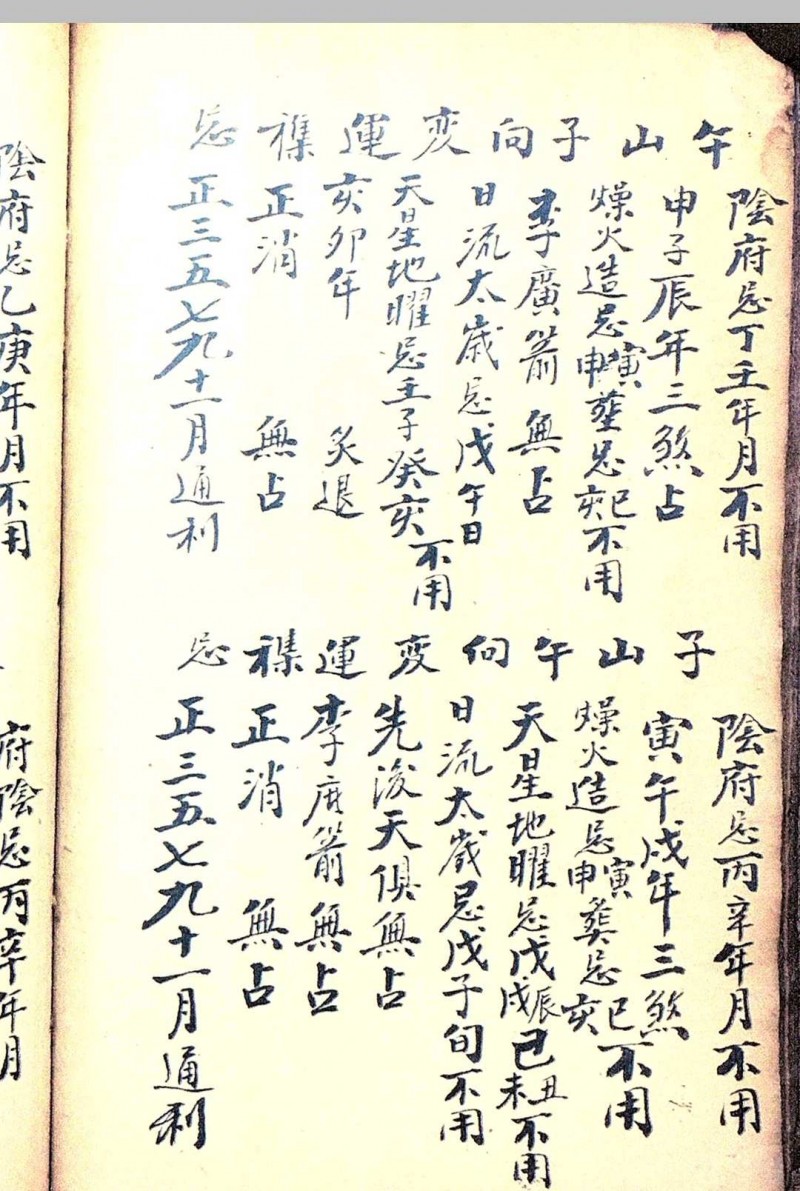 午山子向変運襍忌
陰府忌丁壬年月不用
申子辰年三煞占
燥火造忌寅申塟忌巳亥不用
李廣箭 無占
日流太歲忌戊午日
天星地曜忌壬子癸亥不用
亥卯年 炙退
正消 無占
正三五七九十一月通利
子山午向変運襍忌
陰府忌丙辛年月不用
寅午戌年三煞
燥火造忌寅申葬忌巳亥不用
天星地曜忌戊辰戌己丑未不用
日流太歲忌戊子旬不用
先後天俱無占
李廣箭無占
正消 無占
正三五七九十一月通利
陰府忌乙庚年月不用
府陰忌丙辛年月